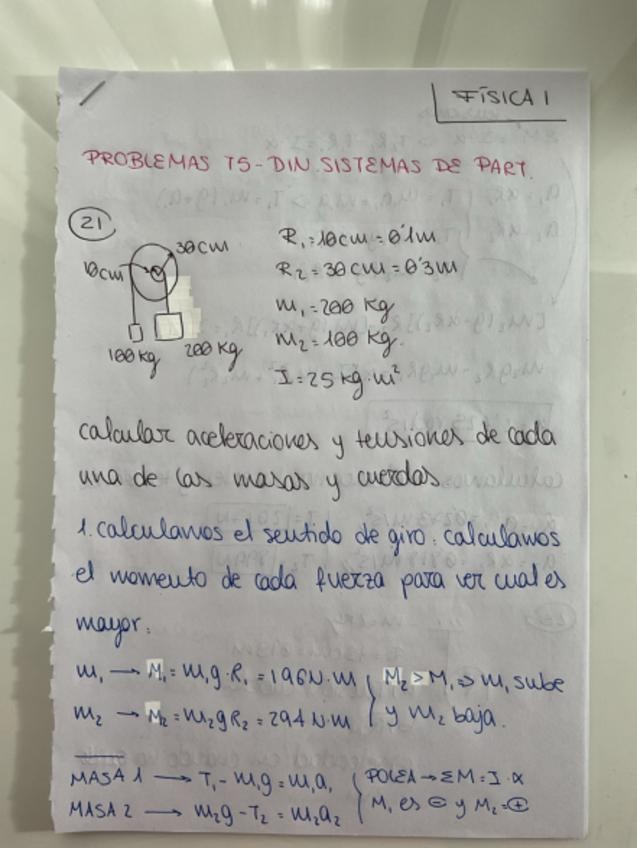 FÍSICA I
PROBLEMAS T5-DIN.SISTEMAS DE PART.
21
30cm
10cm
100kg 200kg
R₁=10cm=0'1m
R₂=30cm=0'3m
m₁=200 kg
m₂=100 kg.
I=25 kg·m²
calcular aceleraciones y tensiones de cada
una de las masas y cuerdas.
1. calculamos el sentido de giro: calculamos
el momento de cada fuerza para ver cual es
mayor:
m₁ → M₁=m₁g·R₁=196N·m
m₂ → M₂=m₂gR₂=294N·m
M₂>M₁⇒m₁ sube
y m₂ baja.
MASA 1 → T₁-m₁g=m₁a₁
MASA 2 → m₂g-T₂=m₂a₂
POLEA→ΣM=I·α
M₁ es ⊖ y M₂=⊕